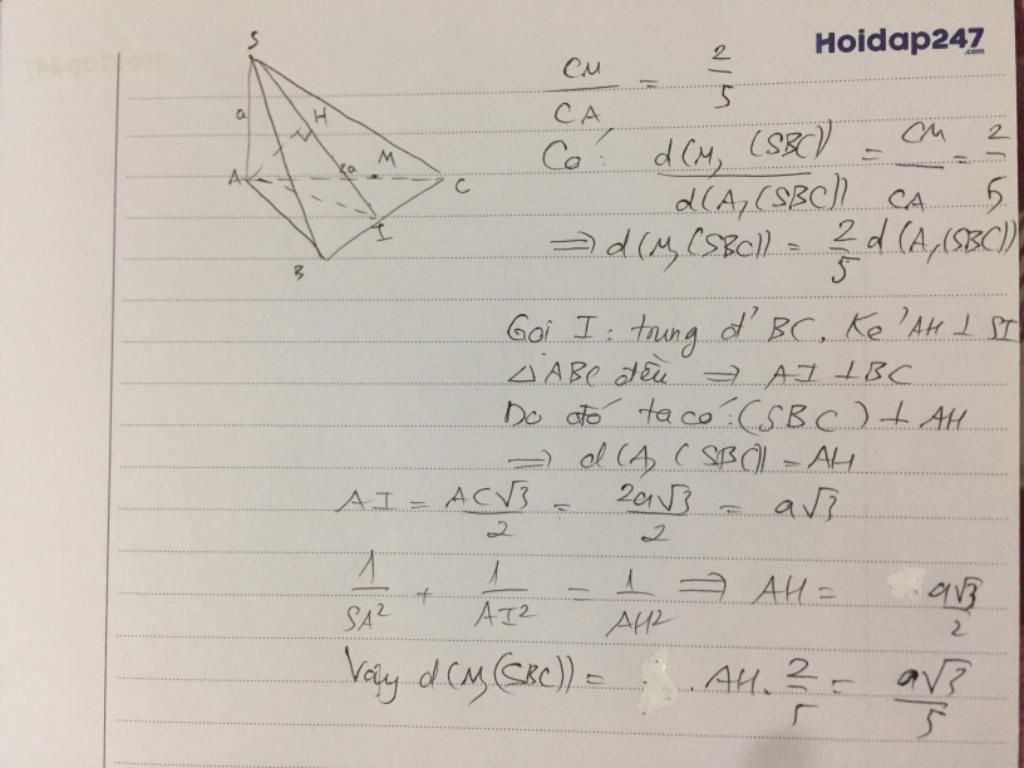 Hoidap247
.com
S
a
H
M
A
2a
C
I
B
CM/CA = 2/5
Có: d(M, (SBC))/d(A, (SBC)) = CM/CA = 2/5
⇒ d(M, (SBC)) = 2/5 d(A, (SBC))
Gọi I: trung đ' BC. Kẻ AH ⊥ SI
△ABC đều ⇒ AI ⊥ BC
Do đó ta có: (SBC) ⊥ AH
⇒ d(A, (SBC)) = AH
AI = AC√3/2 = 2a√3/2 = a√3
1/SA² + 1/AI² = 1/AH² ⇒ AH = a√3/2
Vậy d(M, (SBC)) = . AH. 2/5 = a√3/5